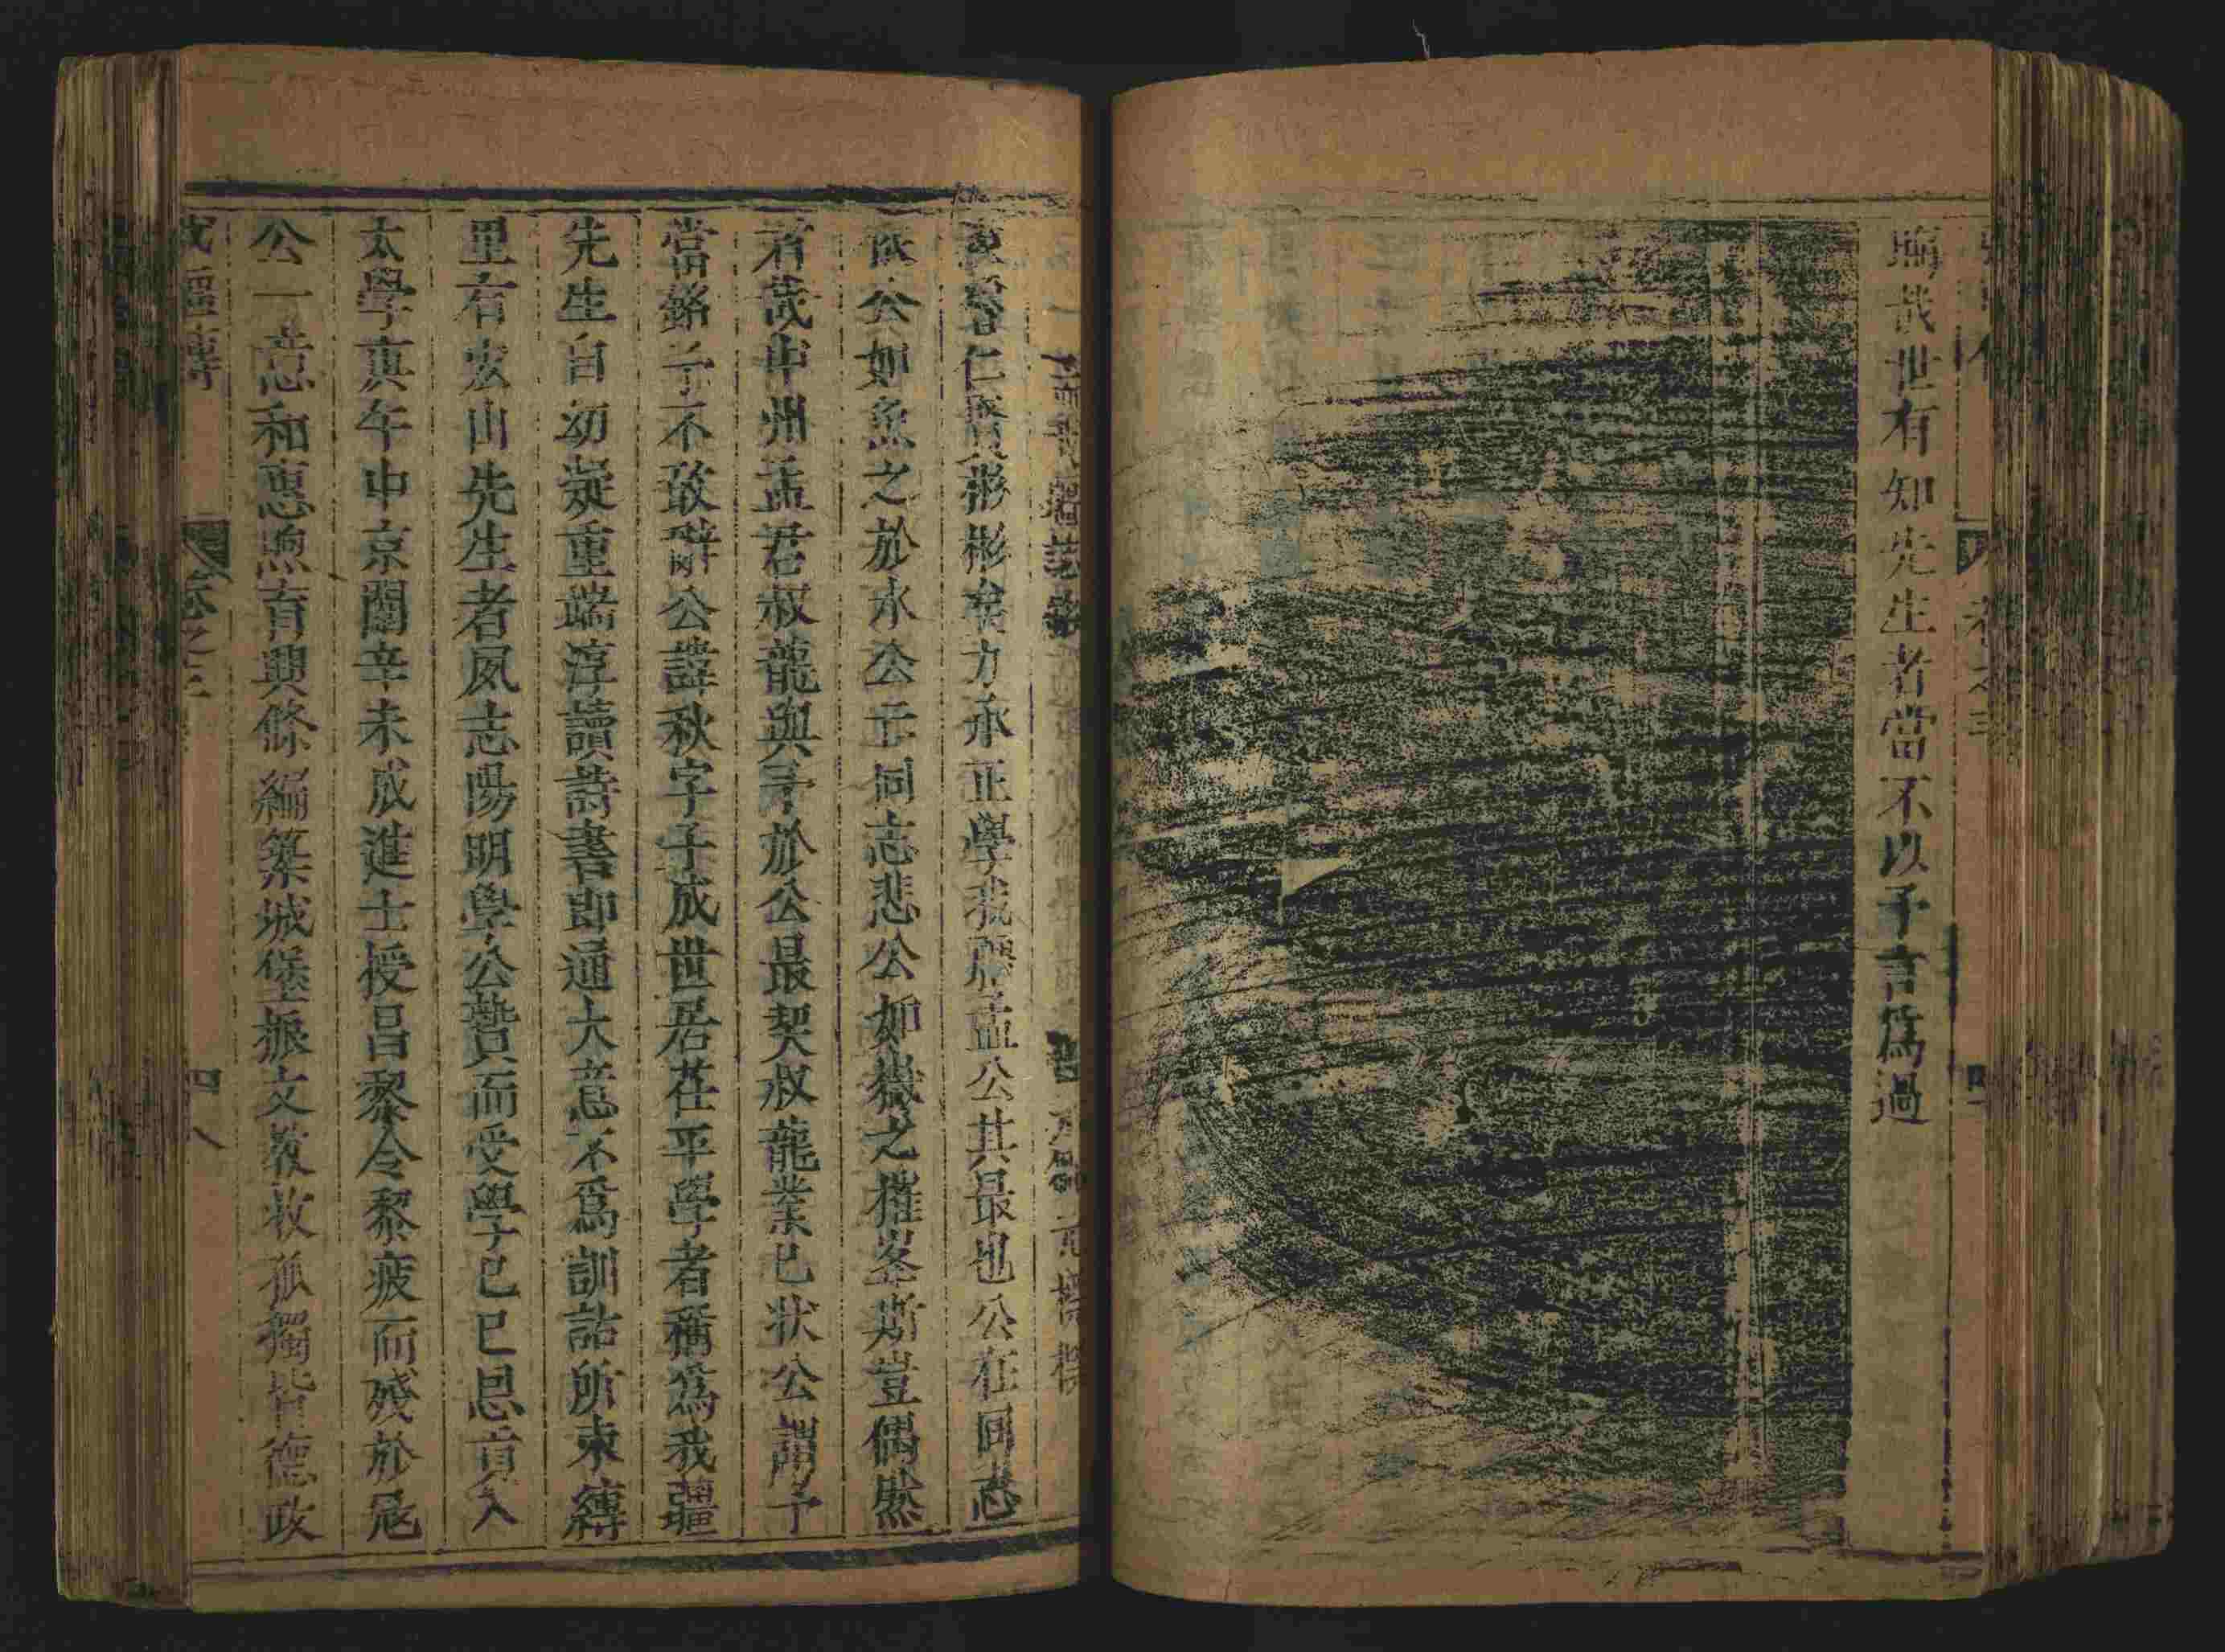 哉世有知先生者當不以予言爲過
仁賢彬彬矣力承正學我疆孟公其最也公在同志
依公如魚之於水公云同志悲公如幾之摧峯斯豈偶然
者哉中州孟君叔龍與予於公最契叔龍業已狀公謂予
當銘予不敢辭公諱秋字子成世居茌平學者稱爲我疆
先生自幼凝重端淳讀詩書即通大意不爲訓詁所束縛
里有宏山先生者夙志陽明學公贄而受學己巳恩貢入
太學庚午中京闈辛未成進士授昌黎令黎疲而殘於寇
公一意和惠煦育興條編築城堡振文教收孤獨皆德政
卷之三
四八